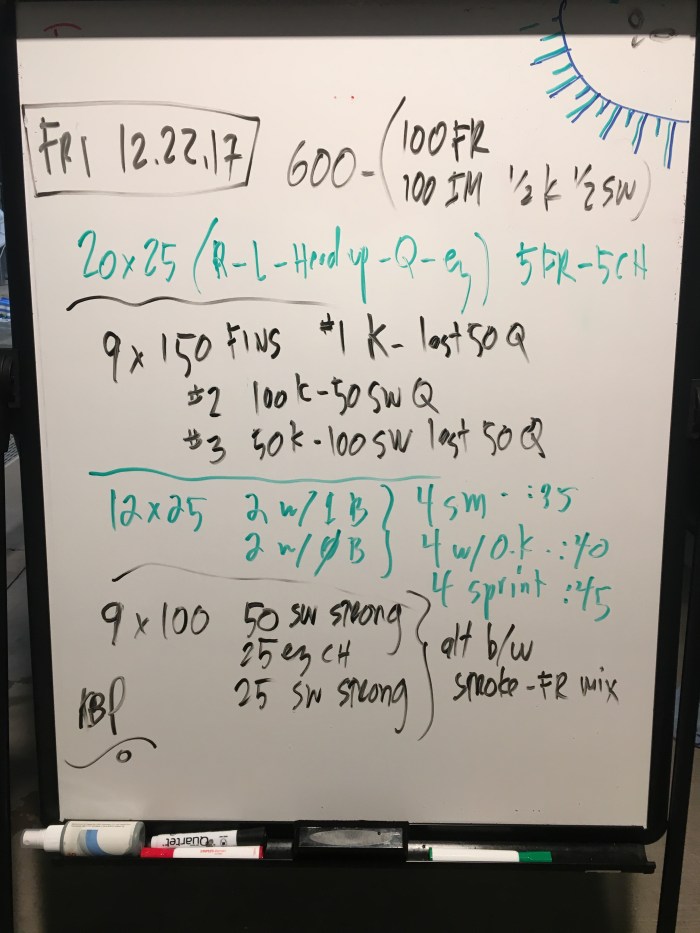 FRI 12.22.17
600-(100 FR
100 IM 1/2 K 1/2 SW)
20x25 (R-L-Head up-Q-ez) 5 FR-5 CH
9 x 150 FINS #1 K- last 50 Q
#2 100 K-50 SW Q
#3 50 K-100 SW last 50 Q
12x25 2 w/1 B } 4 sm - :35
2 w/0 B } 4 w/O.K. :40
4 sprint :45
9 x 100 50 SW STRONG
25 ez CH } alt b/w
25 SW STRONG STROKE-FR MIX
Quartet